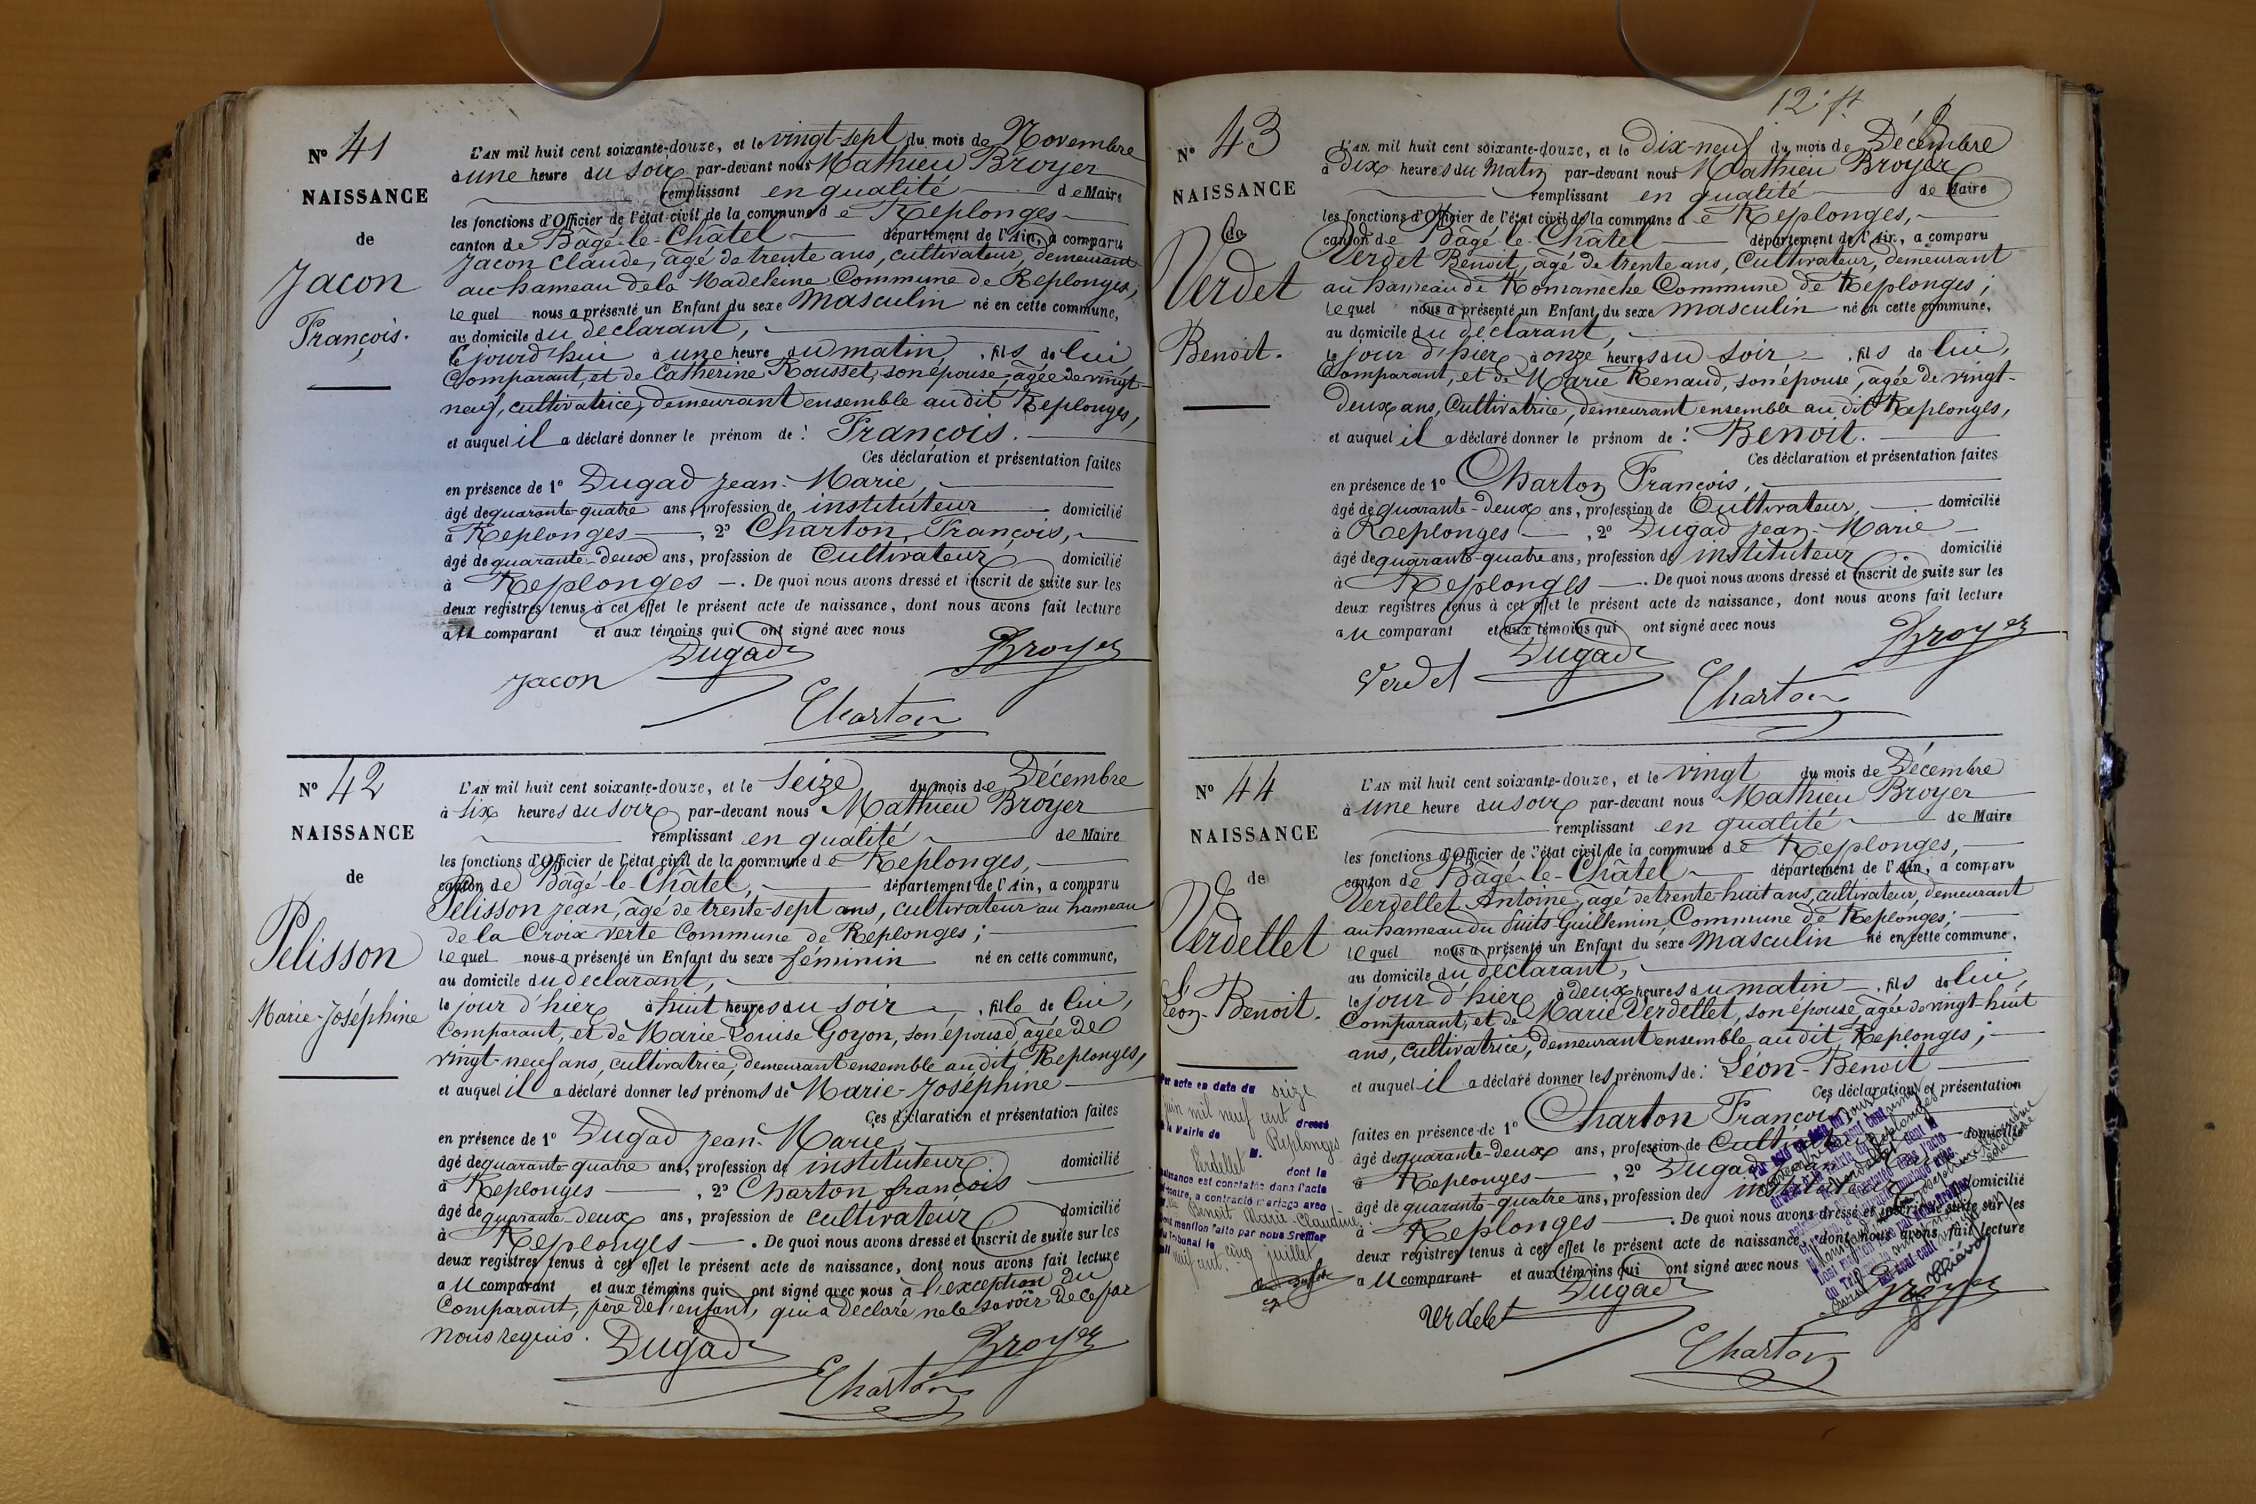 N° 41
NAISSANCE
de
Jacon
François.
L'AN mil huit cent soixante-douze, et le vingt-sept du mois de Novembre
à une heure du soir par-devant nous Mathieu Broyer
remplissant en qualité de Maire
les fonctions d'Officier de l'état civil de la commune de Replonges
canton de Bâgé-le-Châtel département de l'Ain, a comparu
Jacon Claude, âgé de trente ans, cultivateur, demeurant
au hameau de la Madeleine Commune de Replonges,
lequel nous a présenté un Enfant du sexe masculin né en cette commune,
au domicile du déclarant,
ce jourd'hui à une heure du matin, fils de lui
Comparant, et de Catherine Rousset, son épouse, âgée de vingt-
neuf, cultivatrice, demeurant ensemble au dit Replonges,
et auquel il a déclaré donner le prénom de : François.
Ces déclaration et présentation faites
en présence de 1° Dugad Jean-Marie,
âgé de quarante-quatre ans, profession de instituteur domicilié
à Replonges, 2° Charton François,
âgé de quarante-deux ans, profession de Cultivateur domicilié
à Replonges. De quoi nous avons dressé et inscrit de suite sur les
deux registres tenus à cet effet le présent acte de naissance, dont nous avons fait lecture
au comparant et aux témoins qui ont signé avec nous
Jacon Dugad Broyer
Charton
N° 42
NAISSANCE
de
Pelisson
Marie-Joséphine
L'AN mil huit cent soixante-douze, et le seize du mois de Décembre
à six heures du soir par-devant nous Mathieu Broyer
remplissant en qualité de Maire
les fonctions d'Officier de l'état civil de la commune de Replonges,
canton de Bâgé-le-Châtel, département de l'Ain, a comparu
Pelisson Jean, âgé de trente-sept ans, cultivateur au hameau
de la Croix verte Commune de Replonges ;
lequel nous a présenté un Enfant du sexe féminin né en cette commune,
au domicile du déclarant,
le jour d'hier à huit heures du soir, fille de lui,
Comparant, et de Marie-Louise Goyon, son épouse, âgée de
vingt-neuf ans, cultivatrice, demeurant ensemble au dit Replonges,
et auquel il a déclaré donner les prénoms de Marie-Joséphine
Ces déclaration et présentation faites
en présence de 1° Dugad Jean-Marie,
âgé de quarante-quatre ans, profession de instituteur domicilié
à Replonges, 2° Charton françois
âgé de quarante-deux ans, profession de cultivateur domicilié
à Replonges. De quoi nous avons dressé et inscrit de suite sur les
deux registres tenus à cet effet le présent acte de naissance, dont nous avons fait lecture
au comparant et aux témoins qui ont signé avec nous à l'exception du
Comparant, père de l'enfant, qui a déclaré ne le savoir de ce par
nous requis.
Dugad Broyer
Charton
12e ft
N° 43
NAISSANCE
de
Verdet
Benoit.
L'AN mil huit cent soixante-douze, et le dix-neuf du mois de Décembre
à dix heures du matin par-devant nous Mathieu Broyer
remplissant en qualité de Maire
les fonctions d'Officier de l'état civil de la commune de Replonges,
canton de Bâgé-le-Châtel département de l'Ain, a comparu
Verdet Benoit, âgé de trente ans, Cultivateur, demeurant
au hameau de Romanèche Commune de Replonges ;
lequel nous a présenté un Enfant du sexe masculin né en cette commune,
au domicile du déclarant,
le jour d'hier à onze heures du soir, fils de lui,
Comparant, et de Marie Renaud, son épouse, âgée de vingt-
deux ans, Cultivatrice, demeurant ensemble au dit Replonges,
et auquel il a déclaré donner le prénom de : Benoit.
Ces déclaration et présentation faites
en présence de 1° Charton François,
âgé de quarante-deux ans, profession de Cultivateur, domicilié
à Replonges, 2° Dugad Jean-Marie
âgé de quarante-quatre ans, profession de instituteur domicilié
à Replonges. De quoi nous avons dressé et inscrit de suite sur les
deux registres tenus à cet effet le présent acte de naissance, dont nous avons fait lecture
au comparant et aux témoins qui ont signé avec nous
Verdet Dugad Broyer
Charton
N° 44
NAISSANCE
de
Verdellet
Léon-Benoit.
L'AN mil huit cent soixante-douze, et le vingt du mois de Décembre
à une heure du soir par-devant nous Mathieu Broyer
remplissant en qualité de Maire
les fonctions d'Officier de l'état civil de la commune de Replonges,
canton de Bâgé-le-Châtel département de l'Ain, a comparu
Verdellet Antoine, âgé de trente-huit ans, cultivateur, demeurant
au hameau du Puits-Guillemin, Commune de Replonges ;
lequel nous a présenté un Enfant du sexe masculin né en cette commune,
au domicile du déclarant,
le jour d'hier à deux heures du matin, fils de lui,
Comparant, et de Marie Verdellet, son épouse, âgée de vingt-huit
ans, cultivatrice, demeurant ensemble au dit Replonges ;
et auquel il a déclaré donner les prénoms de : Léon-Benoit
Ces déclaration et présentation
faites en présence de 1° Charton François
âgé de quarante-deux ans, profession de Cultivateur domicilié
à Replonges, 2° Dugad
âgé de quarante-quatre ans, profession de instituteur domicilié
à Replonges. De quoi nous avons dressé et inscrit de suite sur les
deux registres tenus à cet effet le présent acte de naissance, dont nous avons fait lecture
au comparant et aux témoins qui ont signé avec nous
verdelet Dugad Broyer
Charton
Par acte en date du seize
juin mil neuf cent dressé
à la Mairie de Replonges
M. Verdellet dont la
naissance est constatée dans l'acte
ci-contre, a contracté mariage avec
Benoit Marie-Claudine
Dont mention faite par nous Greffier
du Tribunal le cinq juillet
mil neuf cent.